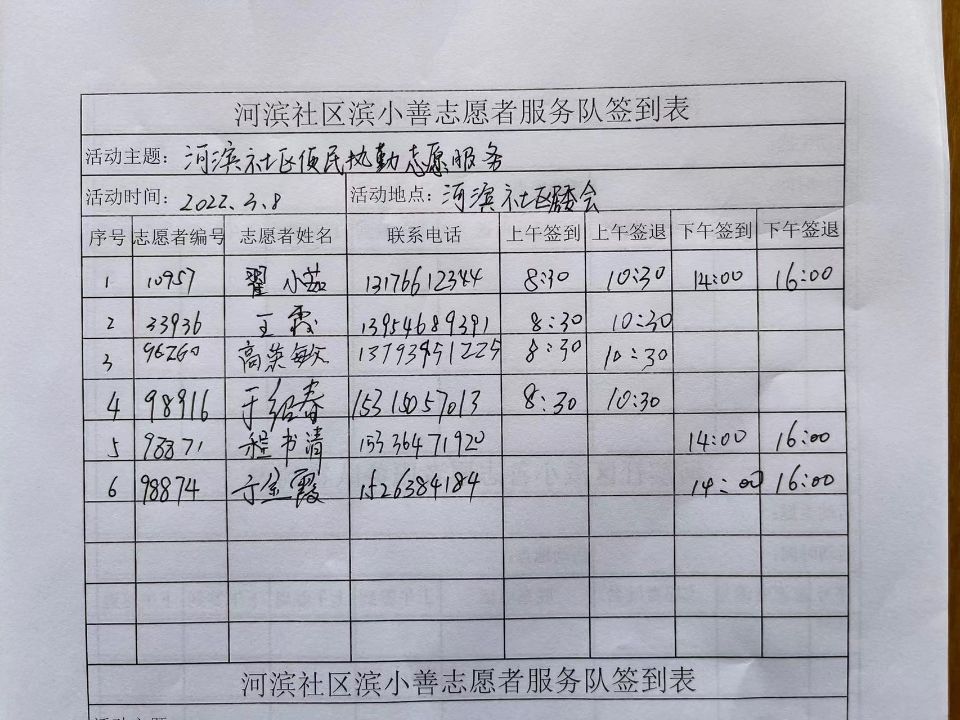 河滨社区滨小善志愿者服务队签到表
活动主题：河滨社区便民执勤志愿服务
活动时间：2022.3.8 活动地点：河滨社区居委会
序号 志愿者编号 志愿者姓名 联系电话 上午签到 上午签退 下午签到 下午签退
1 10957 翟小茹 13176612344 8:30 10:30 14:00 16:00
2 33936 王霞 13954689391 8:30 10:30
3 96260 高荣敏 13793951225 8:30 10:30
4 98916 于绍春 15315057013 8:30 10:30
5 98871 程书清 15336471920 14:00 16:00
6 98874 于金霞 1526384184 14:00 16:00
河滨社区滨小善志愿者服务队签到表